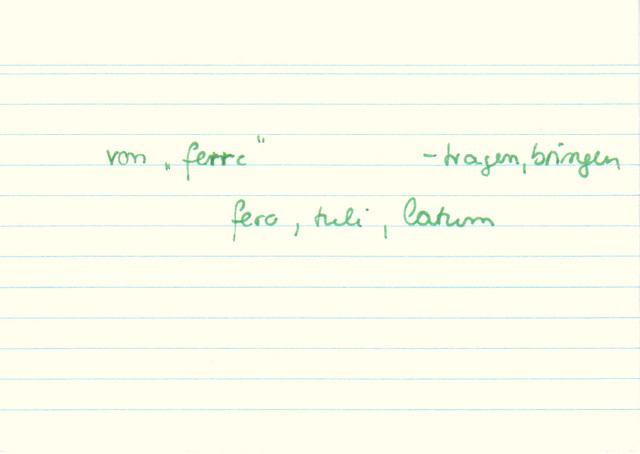 von „ferre“ - tragen, bringen
fero, tuli, latum